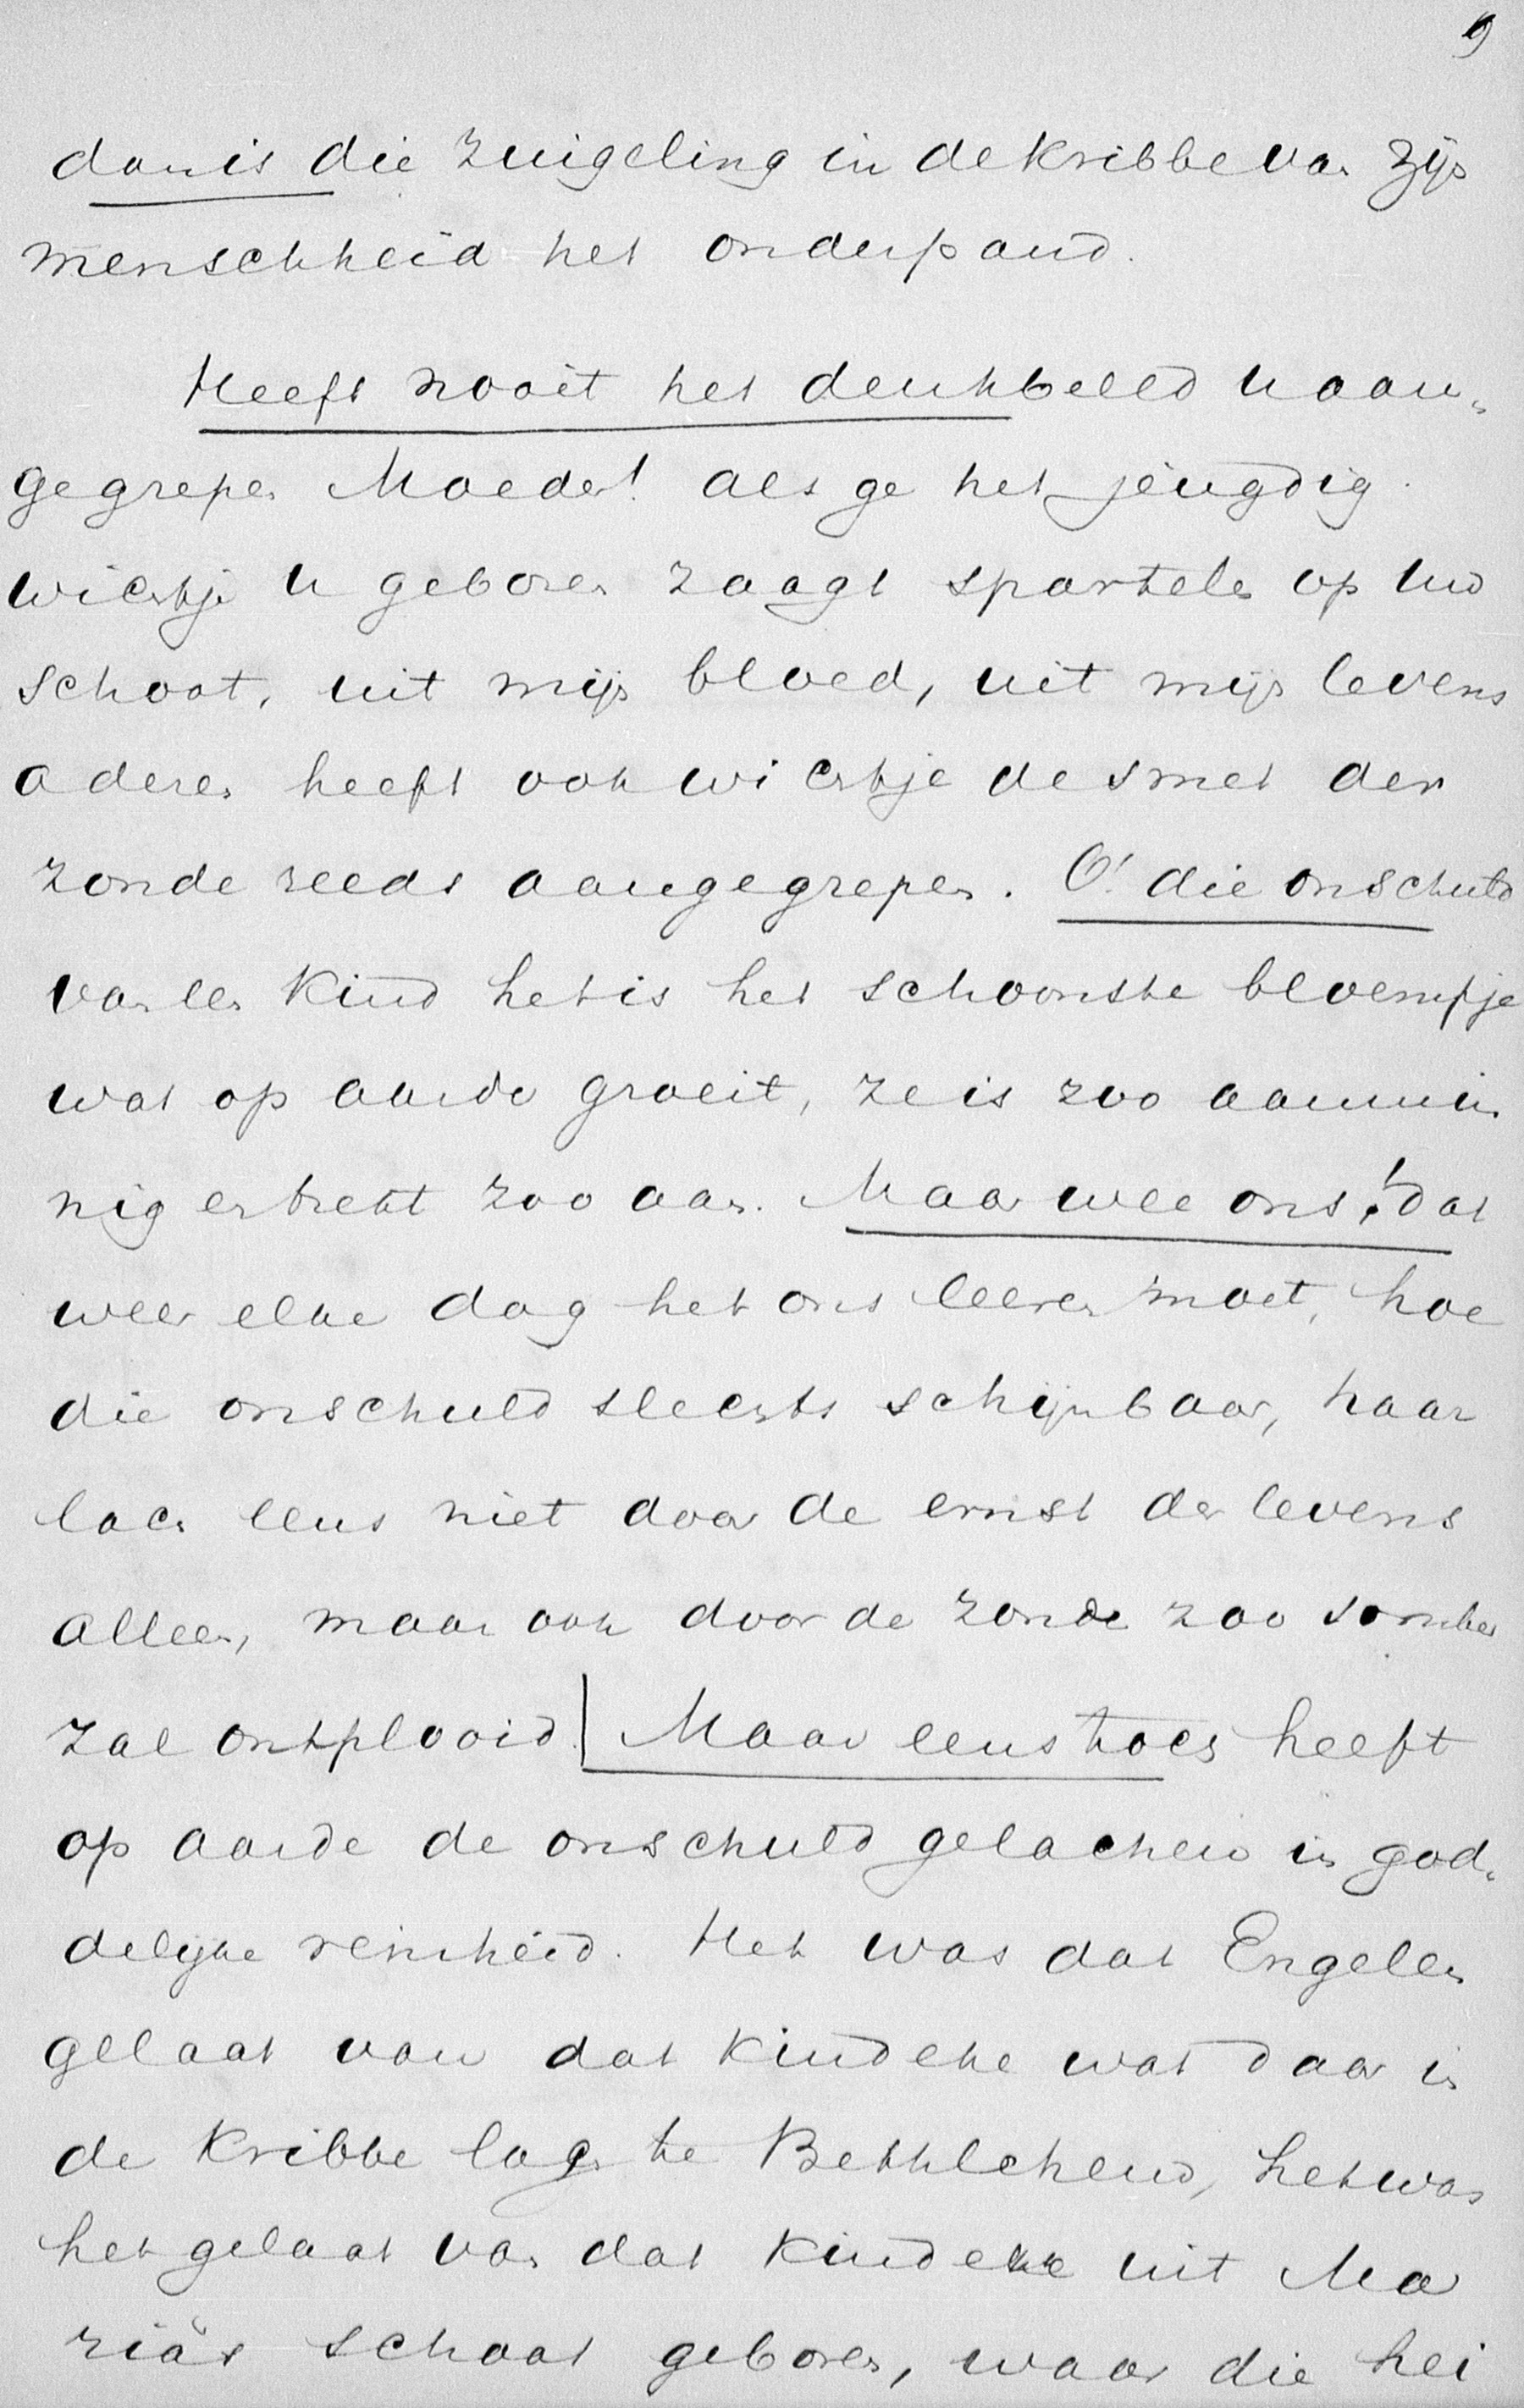 9
dan is die zuigeling in de kribbe van zijn
menschheid het onderpand.
Heeft nooit het denkbeeld u aan-
gegrepen Moeder! als ge het jeugdig
wichtje u geboren zaagt spartelen op uw
schoot, uit mijn bloed, uit mijn levens
aderen heeft ook wichtje de smet der
zonde reeds aangegrepen. O! die onschuld
van een kind het is het schoonste bloempje
wat op aarde groeit, ze is zoo aanmin
nig en trekt zoo aan. Maar wee ons! dat
weer elke dag het ons leeren moet, hoe
die onschuld slechts schijnbaar, haar
lach eens niet door de ernst des levens
alleen, maar ook door de zonde zoo somber
zal ontplooid. Maar eens toch heeft
op aarde de onschuld gelachen in god-
delijke reinheid. Het was dat Engelen
gelaat van dat kindeke wat daar in
de kribbe lag te Bethlehem, het was
het gelaat van dat kindeke uit Ma
ria's schoot geboren, waar die hei